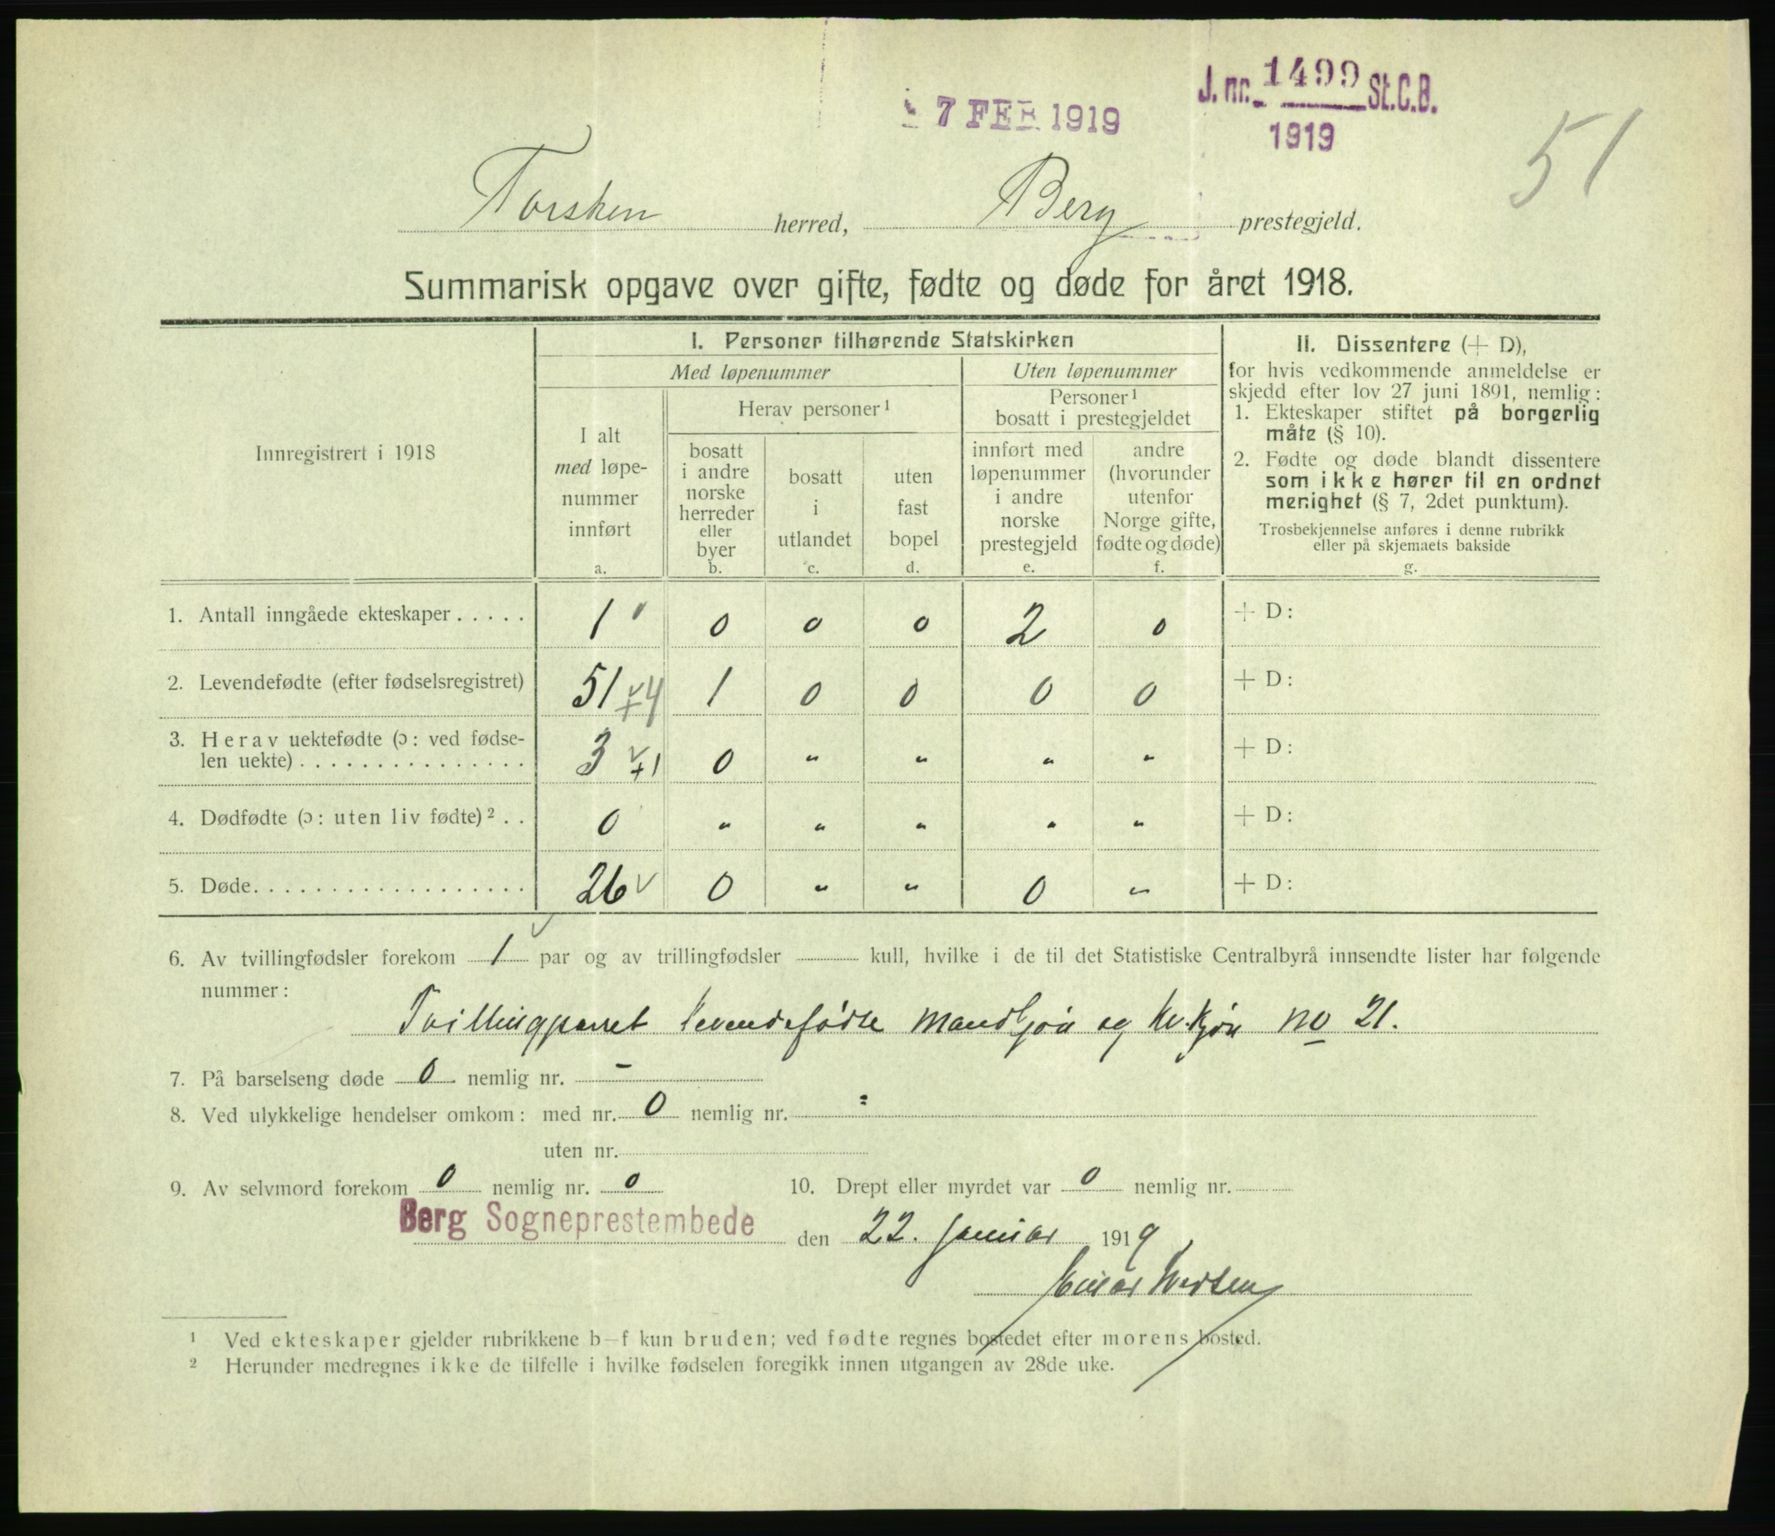 7 FEB 1919
J. nr. 1499 St.C.B.
1919
51
Torsken herred, Berg prestegjeld.
Summarisk opgave over gifte, fødte og døde for året 1918.
Innregistrert i 1918
I. Personer tilhørende Statskirken
Med løpenummer
Uten løpenummer
I alt
med løpe-
nummer
innført
a.
Herav personer¹
bosatt
i andre
norske
herreder
eller
byer
b.
bosatt
i
utlandet
c.
uten
fast
bopel
d.
Personer¹
bosatt i prestegjeldet
innført med
løpenummer
i andre
norske
prestegjeld
e.
andre
(hvorunder
utenfor
Norge gifte,
fødte og døde)
f.
II. Dissentere (+ D),
for hvis vedkommende anmeldelse er
skjedd efter lov 27 juni 1891, nemlig:
1. Ekteskaper stiftet på borgerlig
måte (§ 10).
2. Fødte og døde blandt dissentere
som ikke hører til en ordnet
menighet (§ 7, 2det punktum).
Trosbekjennelse anføres i denne rubrikk
eller på skjemaets bakside
g.
1. Antall inngåede ekteskaper..... 1 0 0 0 2 0 + D:
2. Levendefødte (efter fødselsregistret) 51 +4 1 0 0 0 0 + D:
3. Herav uektefødte (ɔ: ved fødse-
len uekte)............... 3 +1 0 " " " " + D:
4. Dødfødte (ɔ: uten liv fødte)².. 0 " " " " " + D:
5. Døde.................. 26 0 " " 0 " + D:
6. Av tvillingfødsler forekom 1 par og av trillingfødsler kull, hvilke i de til det Statistiske Centralbyrå innsendte lister har følgende
nummer:
Tvillingparret levendefødte mandkjön og kv.kjön no 21.
7. På barselseng døde 0 nemlig nr. -
8. Ved ulykkelige hendelser omkom: med nr. 0 nemlig nr.
uten nr.
9. Av selvmord forekom 0 nemlig nr. 0 10. Drept eller myrdet var 0 nemlig nr.
Berg Sogneprestembede den 22. januar 1919
Einar Iversen
¹ Ved ekteskaper gjelder rubrikkene b–f kun bruden; ved fødte regnes bostedet efter morens bosted.
² Herunder medregnes ikke de tilfelle i hvilke fødselen foregikk innen utgangen av 28de uke.